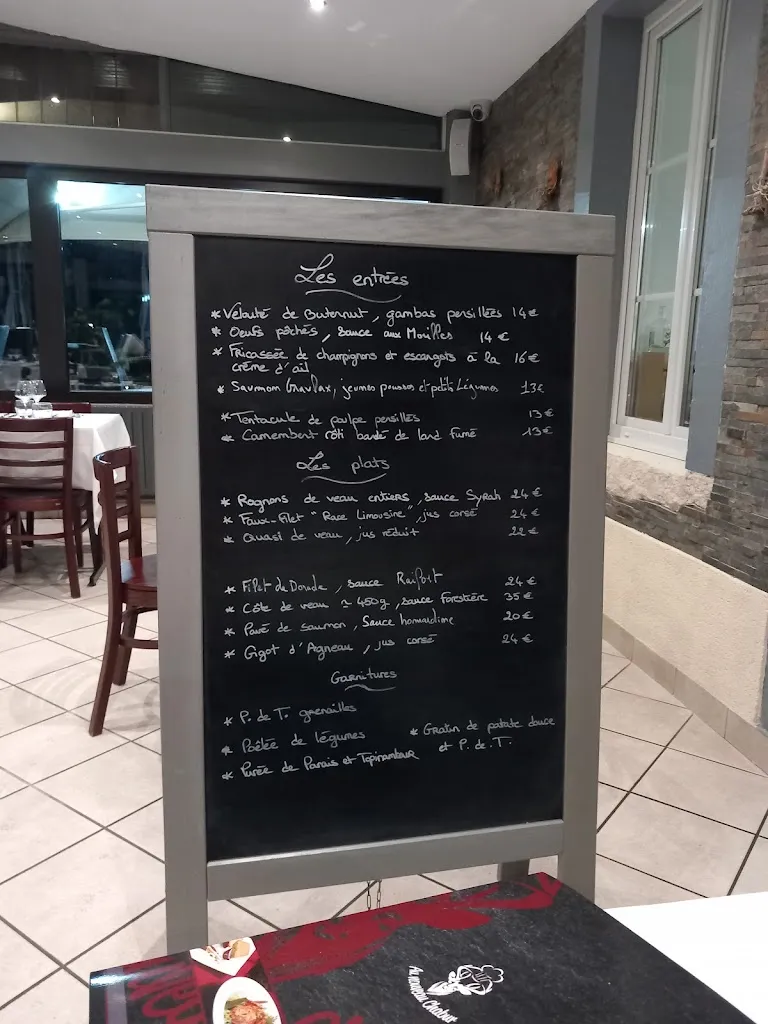 Les entrées
* Velouté de Buternut, gambas persillées 14€
* Oeufs pôchés, sauce aux Morilles 14€
* Fricassée de champignons et escargots à la 16€
crème d'ail
* Saumon Gravlax, jeunes pousses et petits Légumes 13€
* Tentacule de poulpe persillés 13€
* Camembert rôti bardé de lard fumé 13€
Les plats
* Rognons de veau entiers, sauce Syrah 24€
* Faux-Filet "Race Limousine", jus corsé 24€
* Quasi de veau, jus réduit 22€
* Filet de Dorade, sauce Raifort 24€
* Côte de veau ≃ 450g, sauce Forestière 35€
* Pavé de saumon, Sauce homardine 20€
* Gigot d'Agneau, jus corsé 24€
Garnitures
* P. de T. grenailles
* Poêlée de légumes
* Purée de Panais et Topinambour
* Gratin de patate douce
et P. de T.
Au nouveau Chabut